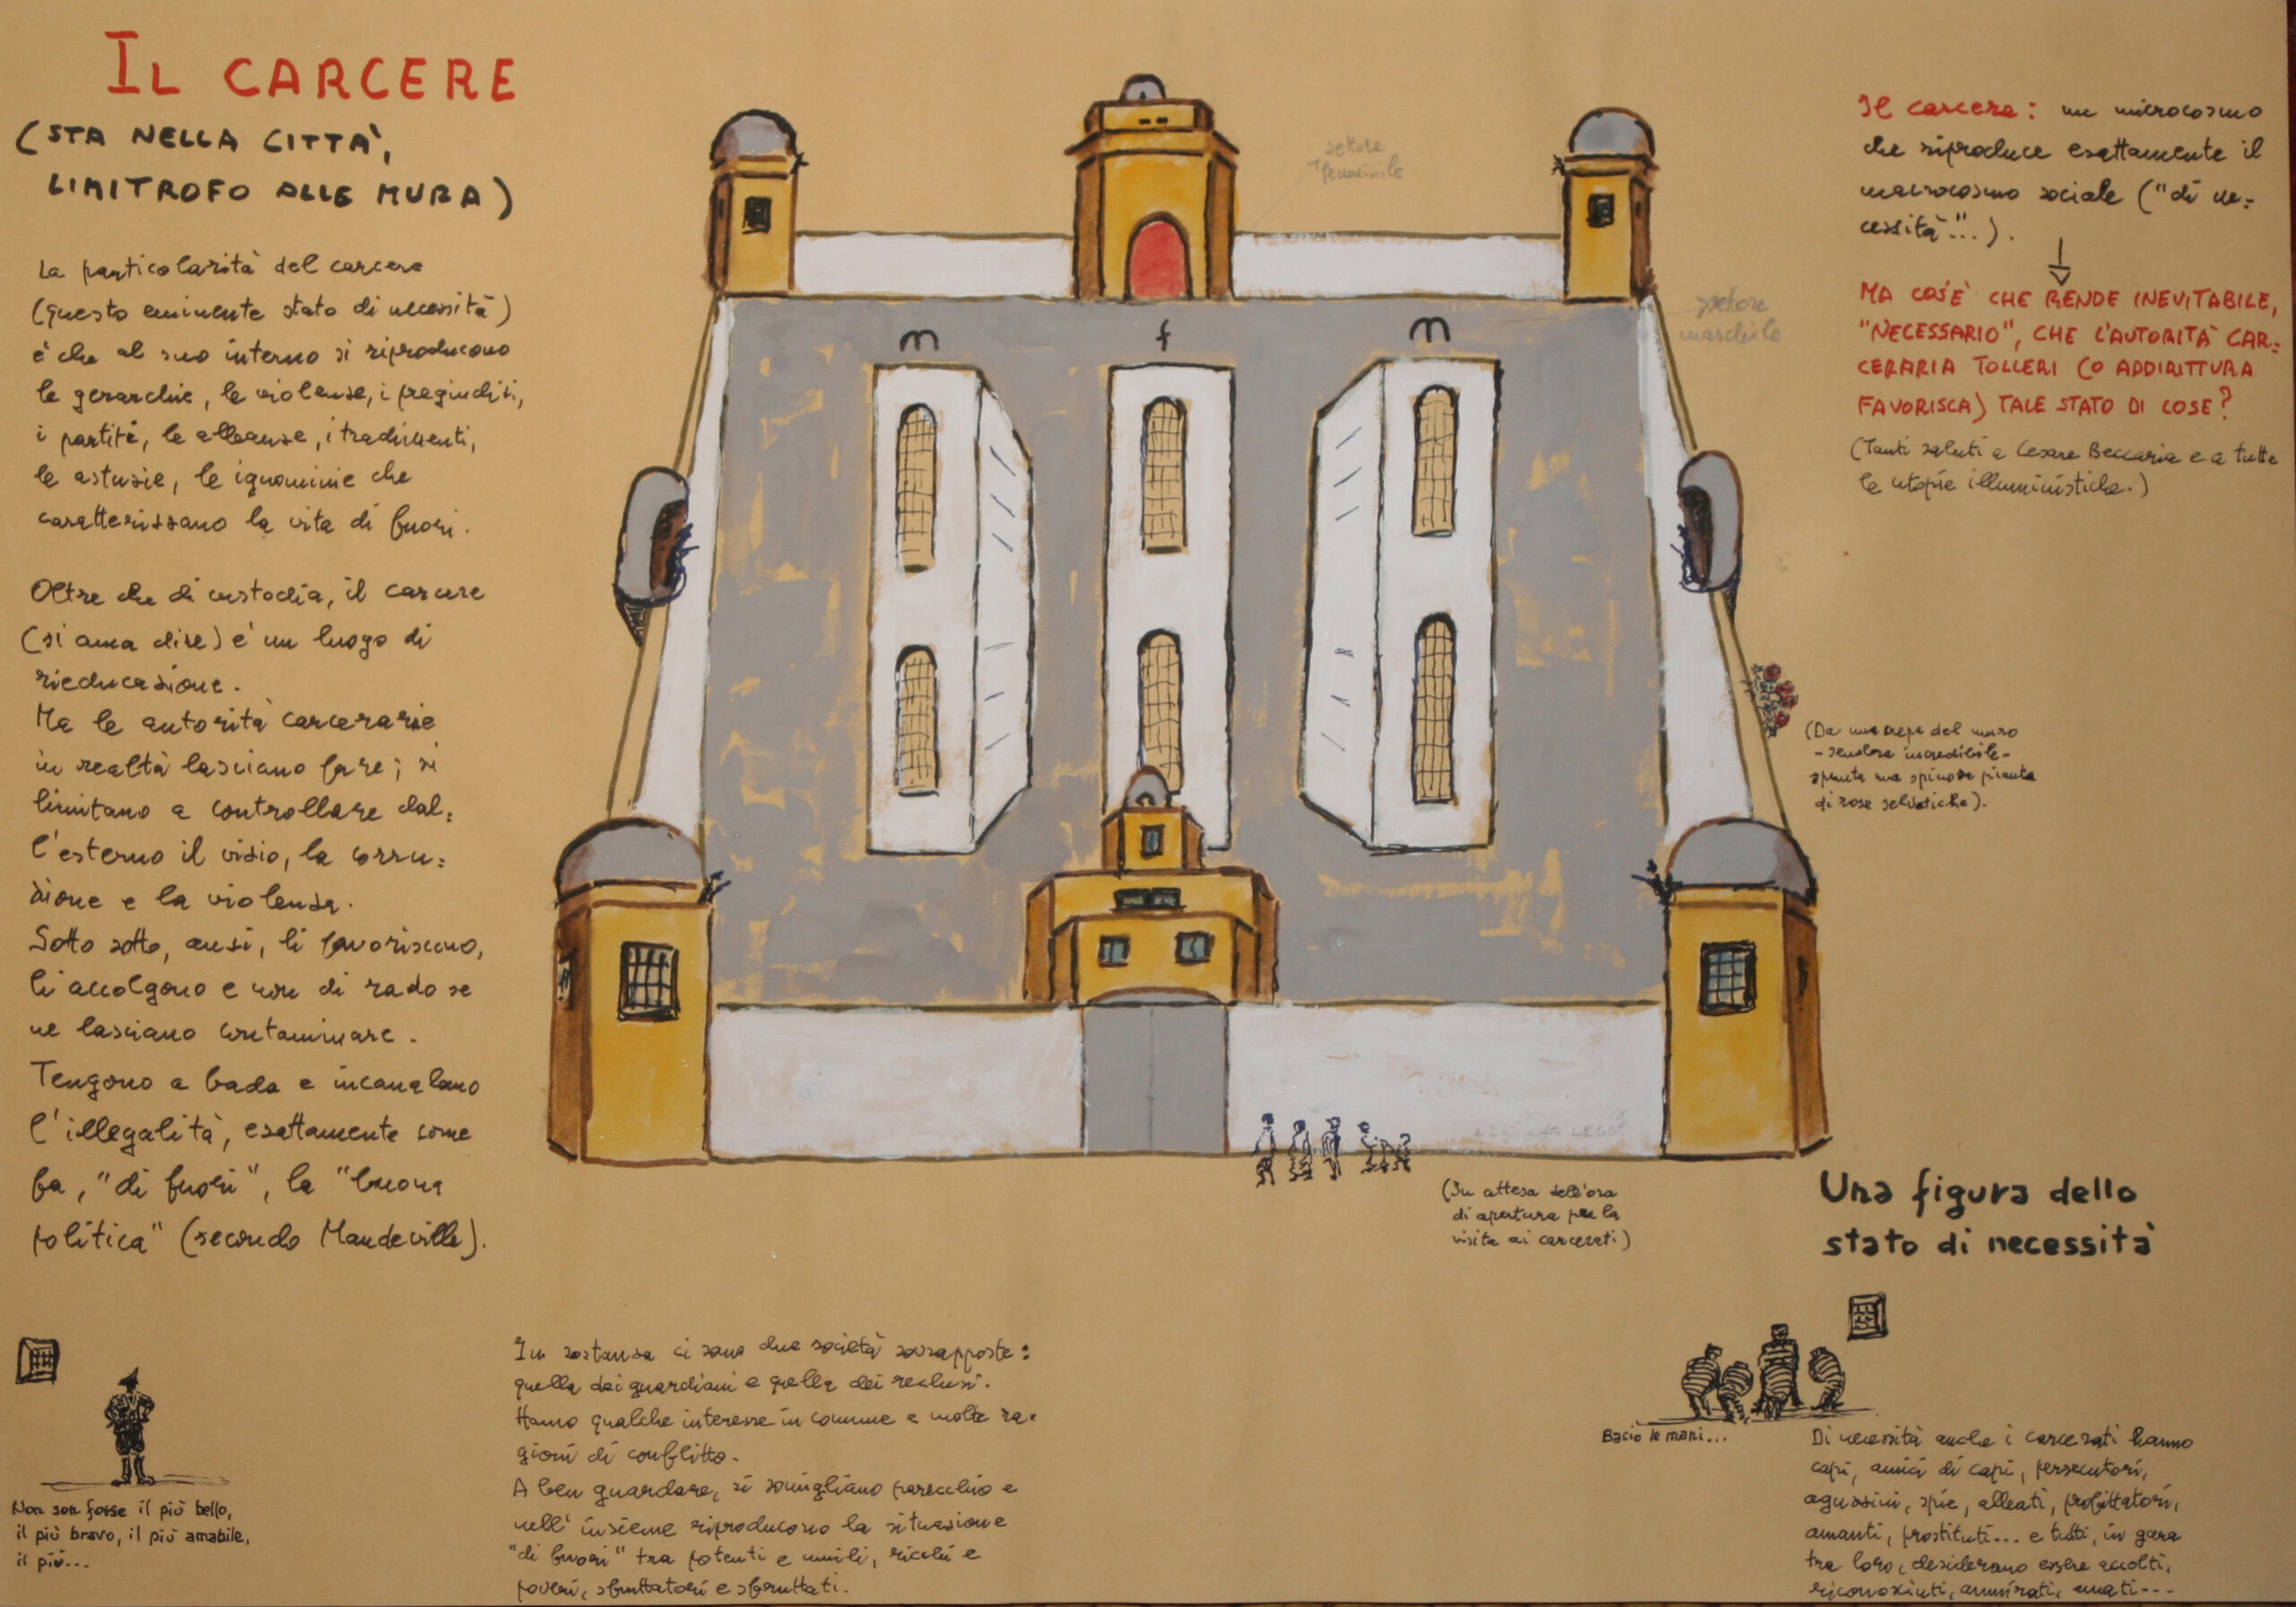 IL CARCERE
(STA NELLA CITTÀ,
LIMITROFO ALLE MURA)
La particolarità del carcere
(questo eminente stato di necessità)
è che al suo interno si riproducono
le gerarchie, le violenze, i pregiudizi,
i partiti, le alleanze, i tradimenti,
le astuzie, le ignominie che
caratterizzano la vita di fuori.
Oltre che di custodia, il carcere
(si ama dire) è un luogo di
rieducazione.
Ma le autorità carcerarie
in realtà lasciano fare; si
limitano a controllare dal=
l'esterno il vizio, la corru=
zione e la violenza.
Sotto sotto, anzi, li favoriscono,
li accolgono e non di rado se
ne lasciano contaminare.
Tengono a bada e incanalano
l'illegalità, esattamente come
fa, "di fuori", la "buona
politica" (secondo Mandeville).
Non son forse il più bello,
il più bravo, il più amabile,
il più...
settore
femminile
m f m
settore
maschile
In sostanza ci sono due società sovrapposte:
quella dei guardiani e quella dei reclusi.
Hanno qualche interesse in comune e molte ra=
gioni di conflitto.
A ben guardare, si somigliano parecchio e
nell'insieme riproducono la situazione
"di fuori" tra potenti e umili, ricchi e
poveri, sfruttatori e sfruttati.
(In attesa dell'ora
di apertura per la
visita ai carcerati)
LEGGE
Il carcere: un microcosmo
che riproduce esattamente il
macrocosmo sociale ("di ne=
cessità"...).
MA COS'È CHE RENDE INEVITABILE,
"NECESSARIO", CHE L'AUTORITÀ CAR=
CERARIA TOLLERI (O ADDIRITTURA
FAVORISCA) TALE STATO DI COSE?
(Tanti saluti a Cesare Beccaria e a tutte
le utopie illuministiche.)
(Da una crepa del muro
- sembra incredibile -
spunta una spinosa pianta
di rose selvatiche).
Una figura dello
stato di necessità
Bacio le mani...
Di necessità anche i carcerati hanno
capi, amici di capi, persecutori,
aguzzini, spie, alleati, profittatori,
amanti, prostituti... e tutti, in gara
tra loro, desiderano essere accolti,
riconosciuti, ammirati, amati...